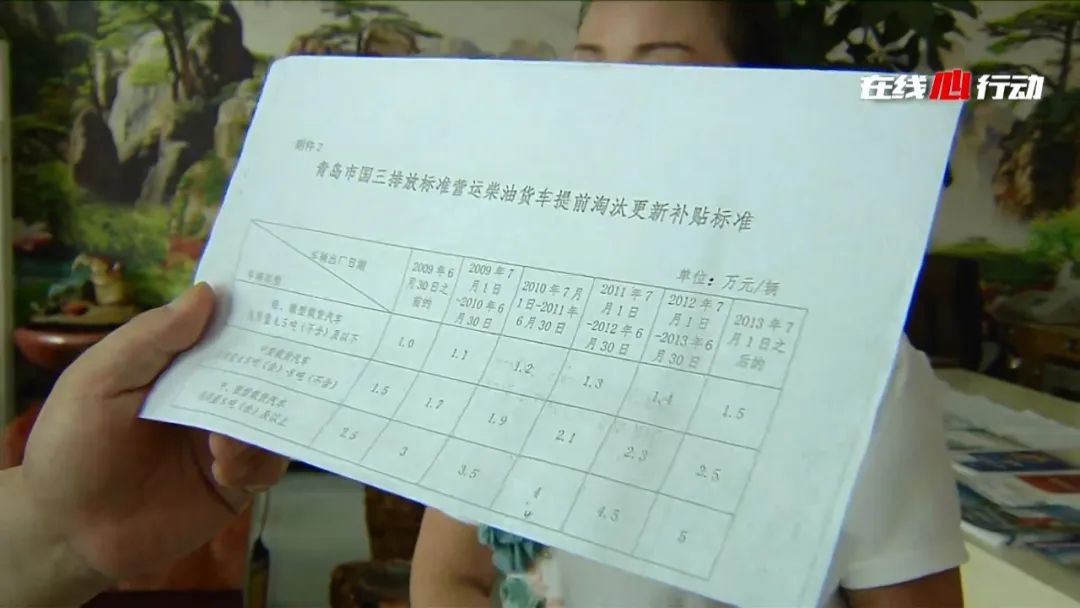 在线心行动
附件2
青岛市国三排放标准营运柴油货车提前淘汰更新补贴标准
单位：万元/辆
车辆出厂日期
车辆类型
2009年6月30日之前的
2009年7月1日-2010年6月30日
2010年7月1日-2011年6月30日
2011年7月1日-2012年6月30日
2012年7月1日-2013年6月30日
2013年7月1日之后的
轻、微型载货汽车
总质量4.5吨（不含）及以下
1.0 1.1 1.2 1.3 1.4 1.5
中型载货汽车
4.5吨（含）-8吨（不含）
1.5 1.7 1.9 2.1 2.3 2.5
重型载货汽车
总质量8吨（含）及以上
2.5 3 3.5 4 4.5 5